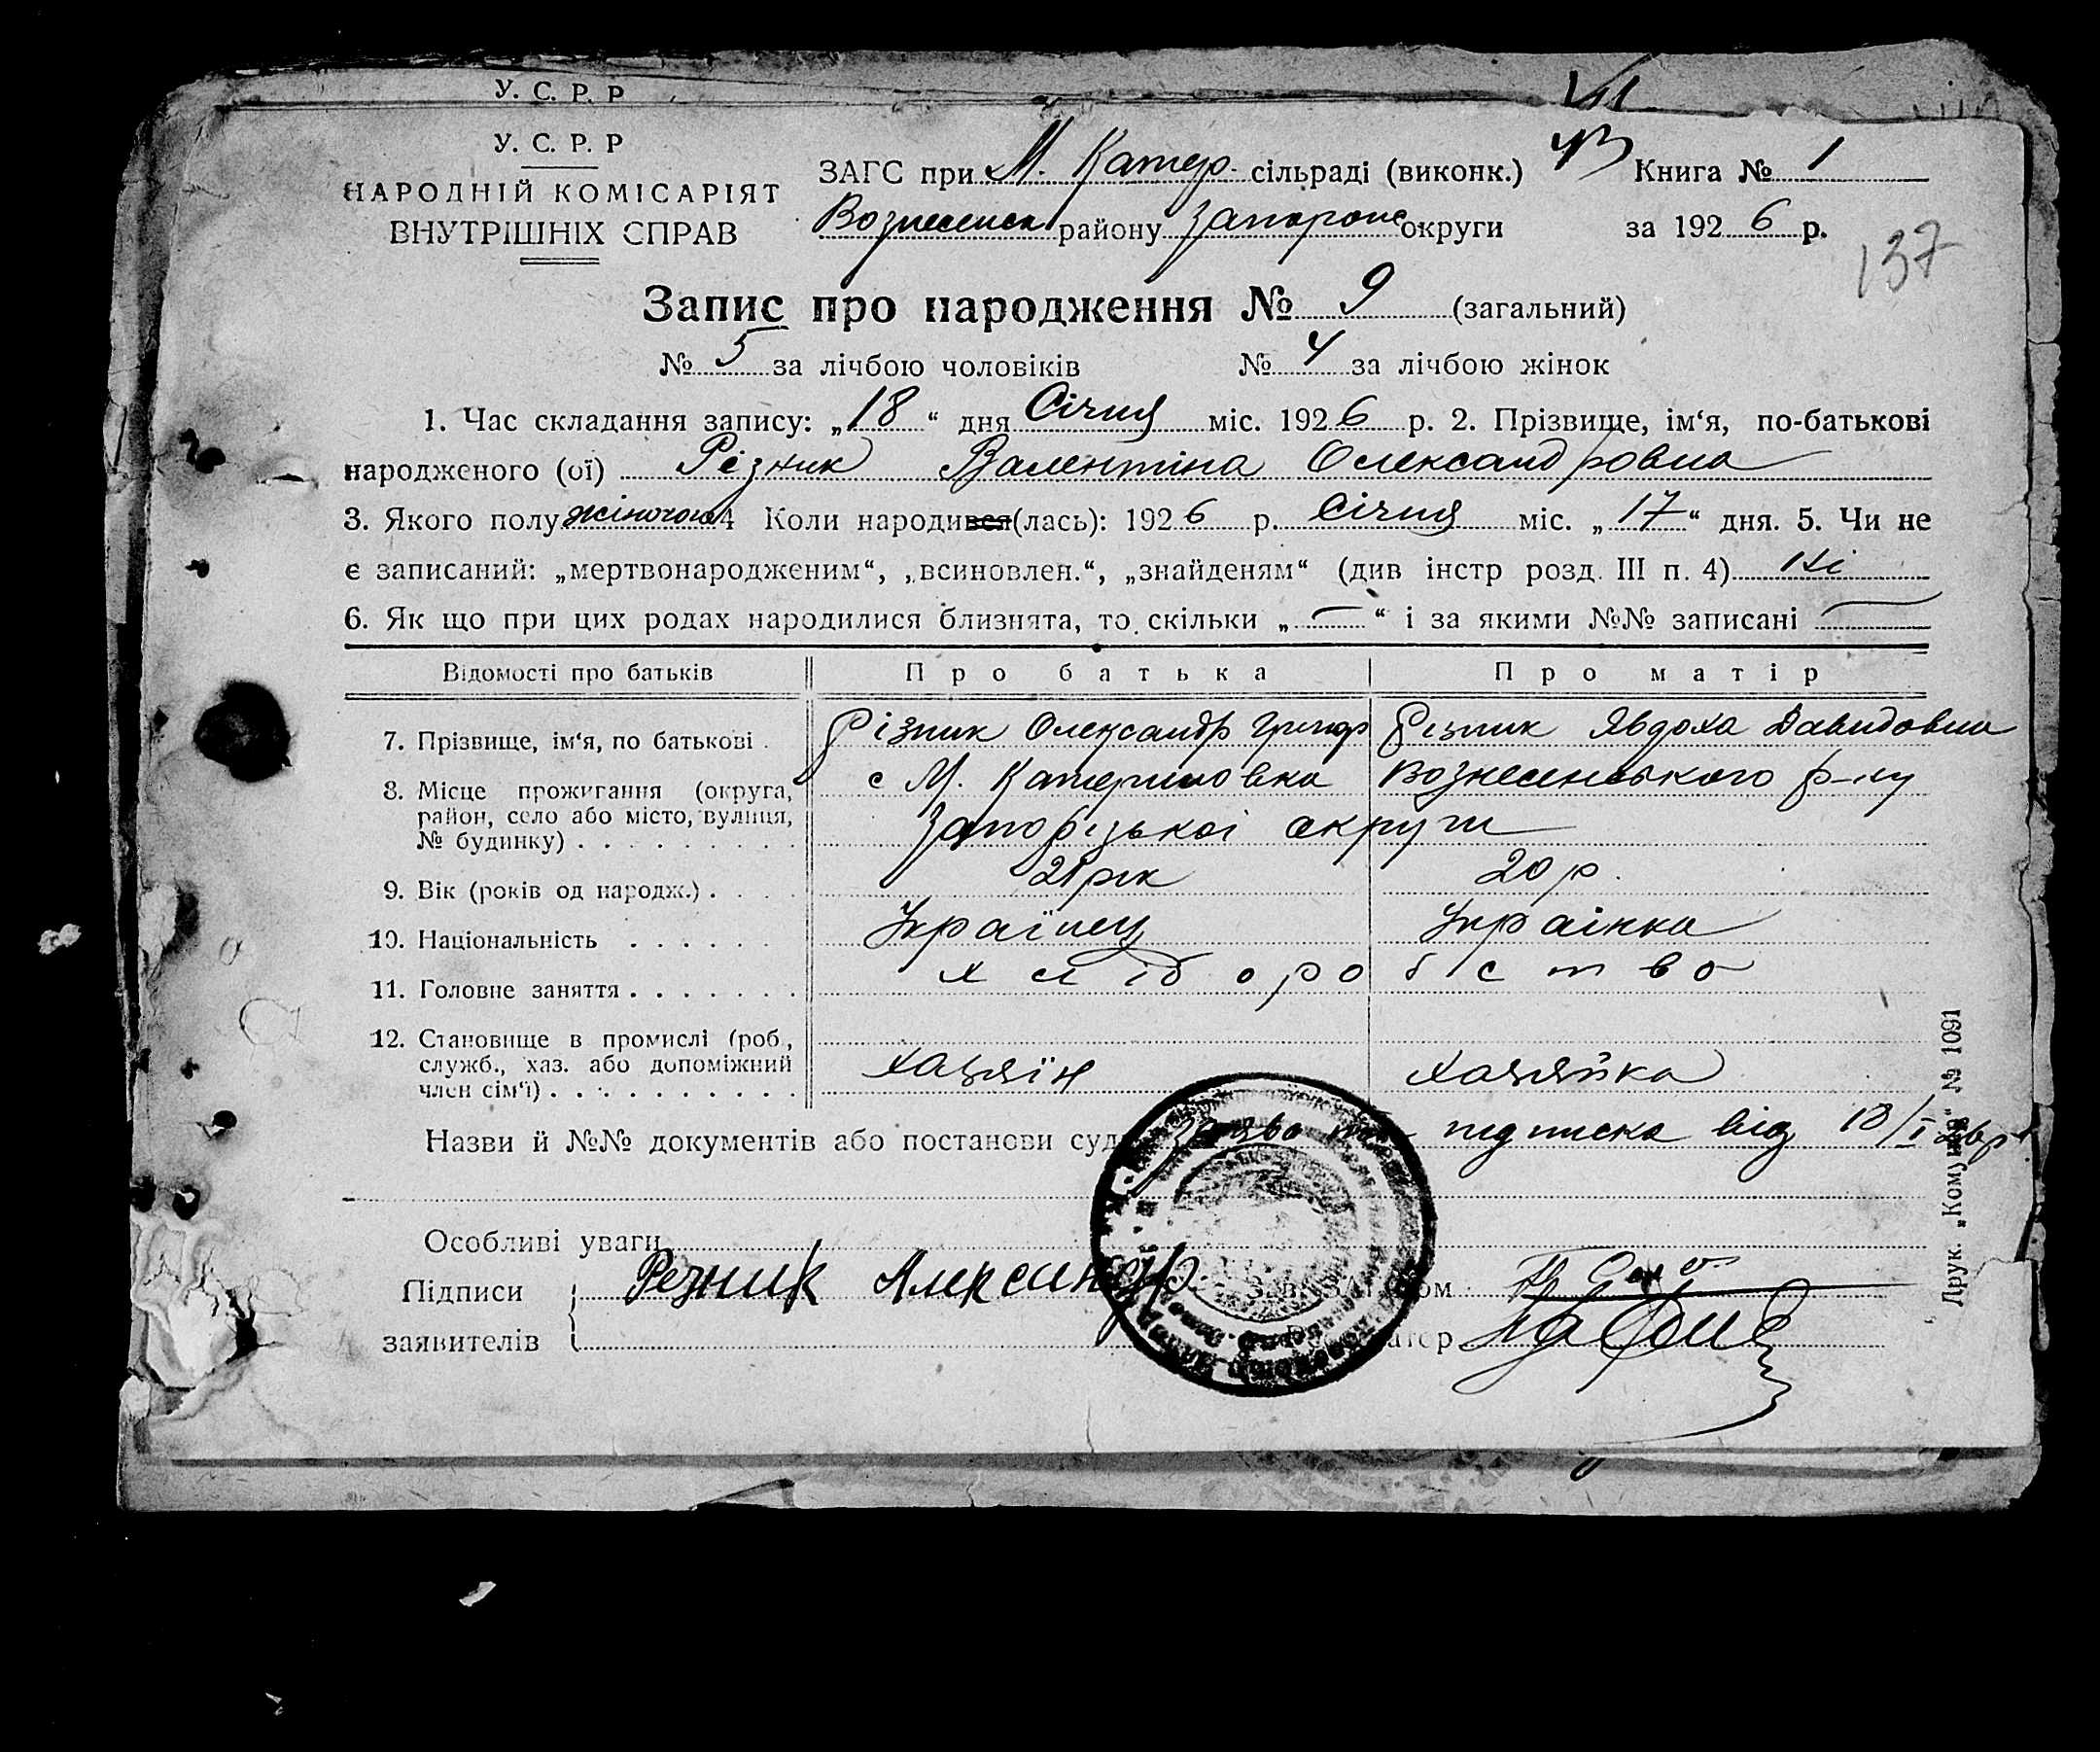 У. С. Р. Р
У. С. Р. Р
НАРОДНІЙ КОМІСАРІЯТ
ВНУТРІШНІХ СПРАВ
ЗАГС при М. Катер. сільраді (виконк.) Книга № 1
Вознесенск району Запорожс округи за 1926 р.
137
Запис про народження № 9 (загальний)
№ 5 за лічбою чоловіків № 4 за лічбою жінок
1. Час складання запису: „18“ дня Січня міс. 1926 р. 2. Прізвище, ім‘я, по-батькові
народженого (ої) Різник Валентіна Олександровна
3. Якого полу жіночого 4 Коли народився(лась): 1926 р. Січня міс. „17“ дня. 5. Чи не
є записаний: „мертвонародженим“, „всиновлен.“, „знайденям“ (див інстр розд. III п. 4) Ні
6. Як що при цих родах народилися близнята, то скільки „—“ і за якими №№ записані —
Відомості про батьків Про батька Про матір
7. Прізвище, ім‘я, по батькові . Різник Олександр Григор Різник Явдоха Давидовна
8. Місце прожигання (округа, с М. Катериновка Вознесенського р-ну
район, село або місто, вулиця, Запорізької округи
№ будинку) . . . . . . . . .
9. Вік (років од народж.) . . . . 21 рік 20 р.
10. Національність . . . . . . Українец Українка
11. Головне заняття . . . . . . . хліборобство
12. Становище в промислі (роб.,
служб., хаз. або допоміжний хазяїн хазяйка
член сім‘ї) . . . . . . . . . .
Назви й №№ документів або постанови суд підписка від 18/I 26 р
Особливі уваги
Підписи Резник Александр
заявителів
Друк. „Комунар“ № 1091